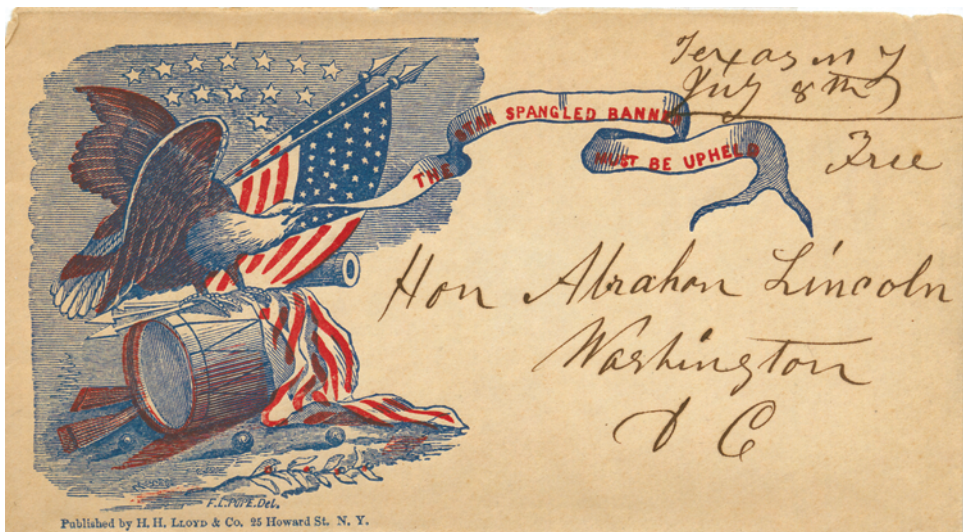 Texas N Y
July 8th
Free
THE STAR SPANGLED BANNER
MUST BE UPHELD
Hon Abraham Lincoln
Washington
D C
F.C. POPE. Del.
Published by H. H. LLOYD & Co. 25 Howard St. N. Y.